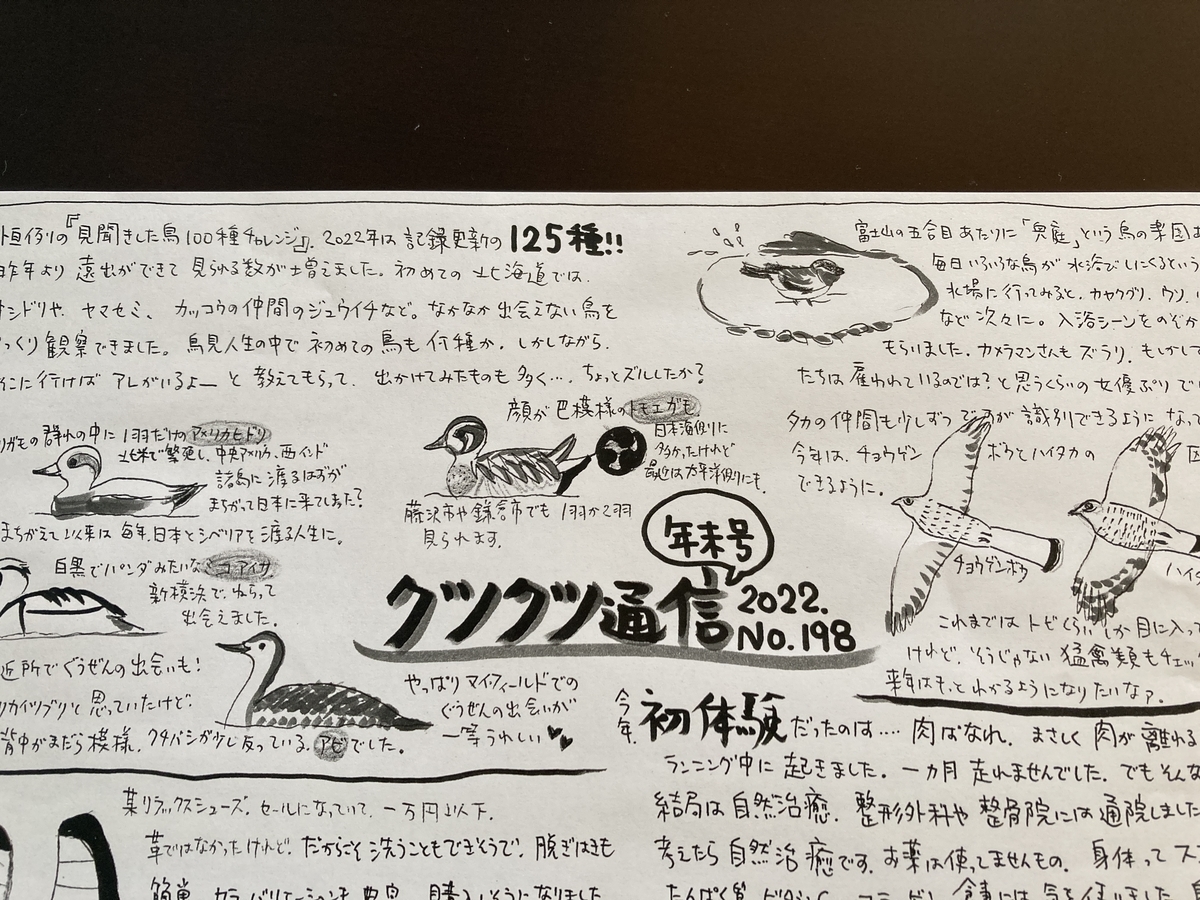 恒例の『見聞きした鳥100種チャレンジ』。2022年は 記録更新の 125種!!
昨年より 遠出ができて 見られる数が増えました。初めての 北海道では、
オシドリや、ヤマセミ、カッコウの仲間のジュウイチなど。なかなか出会えない鳥を
じっくり観察できました。鳥見人生の中で 初めての鳥も何種か。しかしながら、
そこに行けば アレがいるよー と 教えてもらって、出かけてみたものも多く…。ちょっとズルしたか?
富士山の五合目あたりに「奥庭」という鳥の楽園
毎日いろいろな鳥が 水浴びしにくるという
水場に行ってみると、カヤクグリ、ウソ、
など次々に。入浴シーンをのぞか
もらいました。カメラマンさんもズラリ。もしかして
たちは雇われているのでは?と思うくらいの女優ぶりで
ガモの群れの中に 1羽だけのアメリカヒドリ
北米で繁殖し、中央アメリカ、西インド
諸島に渡るはずが
まちがって日本に来てしまった?
まちがえて以来は 毎年、日本とシベリアを渡る人生に。
顔が巴模様のトモエガモ
日本海側に
多かったけれど
最近は太平洋側にも。
藤沢市や鎌倉市でも 1羽か2羽
見られます。
白黒でパンダみたいなミコアイサ
新横浜で、ねらって
出会えました。
近所でぐうぜんの出会いも!
カイツブリと思っていたけど、
背中がまだら模様。クチバシが少し反っている。アビでした。
やっぱりマイフィールドでの
ぐうぜんの出会いが
一等うれしい
年末号
グツグツ通信 2022. No.198
タカの仲間も少しずつですが 識別できるようになっ
今年は、チョウゲンボウとハイタカの区
できるように。
チョウゲンボウ
ハイタ
これまではトビくらいしか目に入っ
けれど、そうじゃない猛禽類もチェッ
来年はもっとわかるようになりたいなァ。
今年、初体験だったのは…. 肉ばなれ。まさしく肉が離れる
ランニング中に起きました。一ヵ月 走れませんでした。でもそんな
結局は自然治癒。整形外科や 整骨院には通院しました
考えたら 自然治癒です。お薬は使ってませんもの。身体ってス
たんぱく質、ビタミンC、コラーゲン、食事には気を使いました。
某リラックスシューズ。セールになっていて、一万円以下。
革ではなかったけれど、だからこそ洗うこともできそうで、脱ぎはきも
簡単、カラーバリエーションも豊富、購入しそうになりました